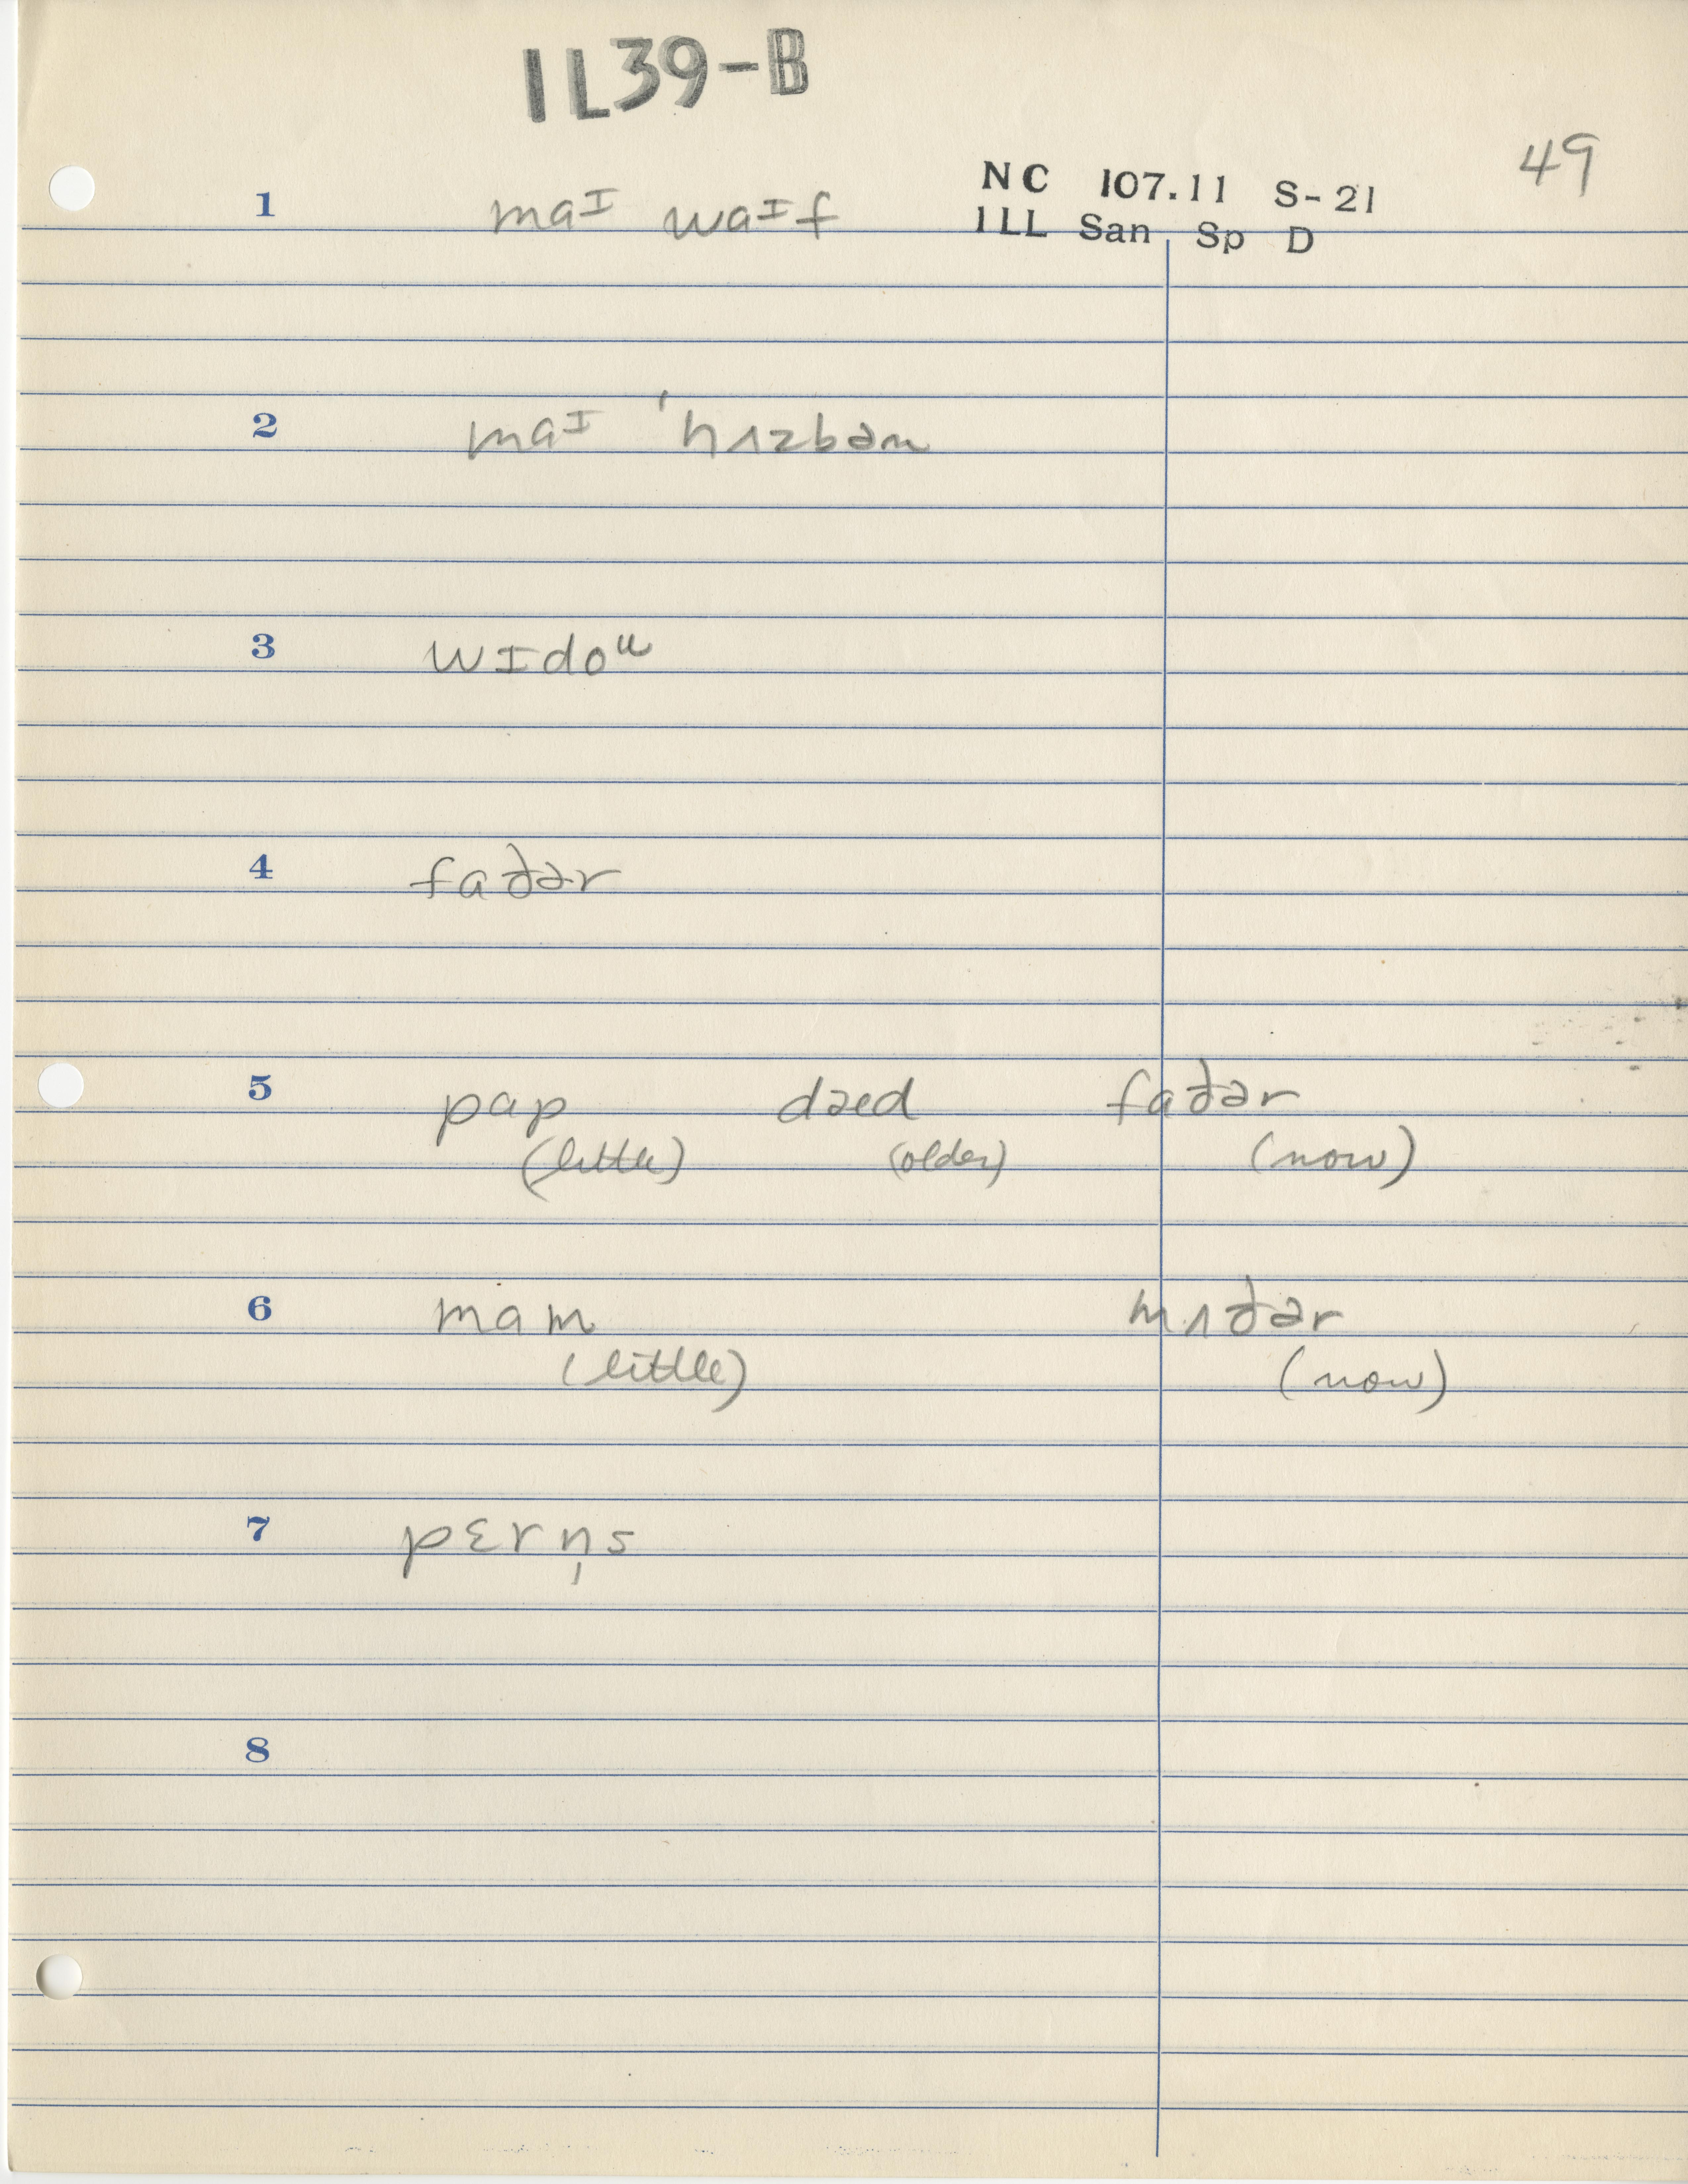 IL39-B
49
NC 107.11 S-21
ILL San Sp D
1 maᶦ waᶦf
2 maᶦ ˈhʌzbəm
3 wɪdoᵘ
4 faðər
5 pap dæd faðər
(little) (older) (now)
6 mam mʌðər
(little) (now)
7 pɛrn̩s
8